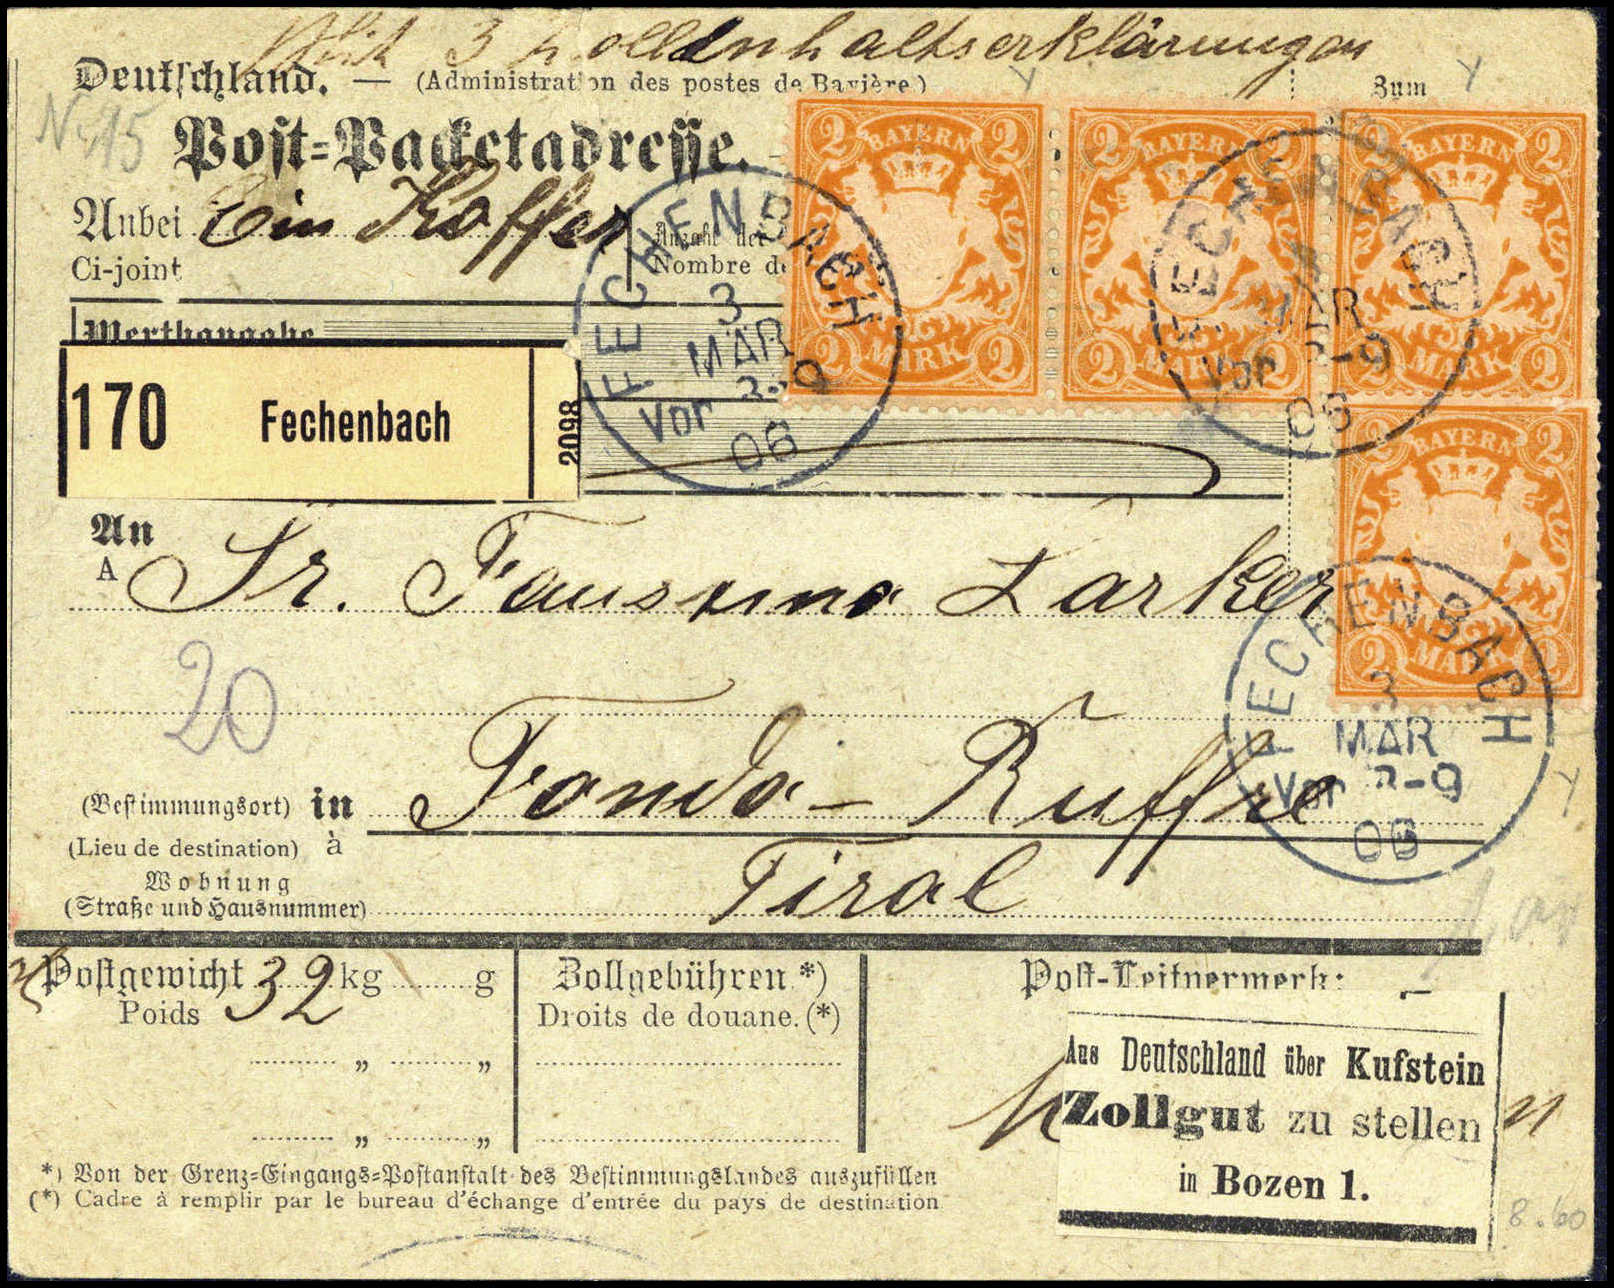 Mit 3 Zollinhaltserklärungen
Deutschland. — (Administration des postes de Bavière)
Zum
Nr. 15
Post=Packetadresse.
Anbei Ein Koffer
Ci-joint
Anzahl der
Nombre de
Werthangabe
170 Fechenbach 2098
BAYERN 2 2 2 2 MARK
BAYERN 2 2 2 2 MARK
BAYERN 2 2 2 2 MARK
BAYERN 2 2 2 2 MARK
FECHENBACH
3
MAR
Vor 8-9
06
FECHENBACH
MAR
Vor 8-9
06
FECHENBACH
3
MAR
Vor 8-9
06
An
A Sr. Larker
20
(Bestimmungsort) in Fondo - Ruffre
(Lieu de destination) à
Tirol
Wohnung
(Straße und Hausnummer)
Postgewicht 32 kg g
Poids
„ „
„ „
Zollgebühren *)
Droits de douane. (*)
Post-Leitvermerk:
Aus Deutschland über Kufstein
Zollgut zu stellen
in Bozen 1.
*) Von der Grenz=Eingangs=Postanstalt des Bestimmungslandes auszufüllen
(*) Cadre à remplir par le bureau d'échange d'entrée du pays de destination
8.60